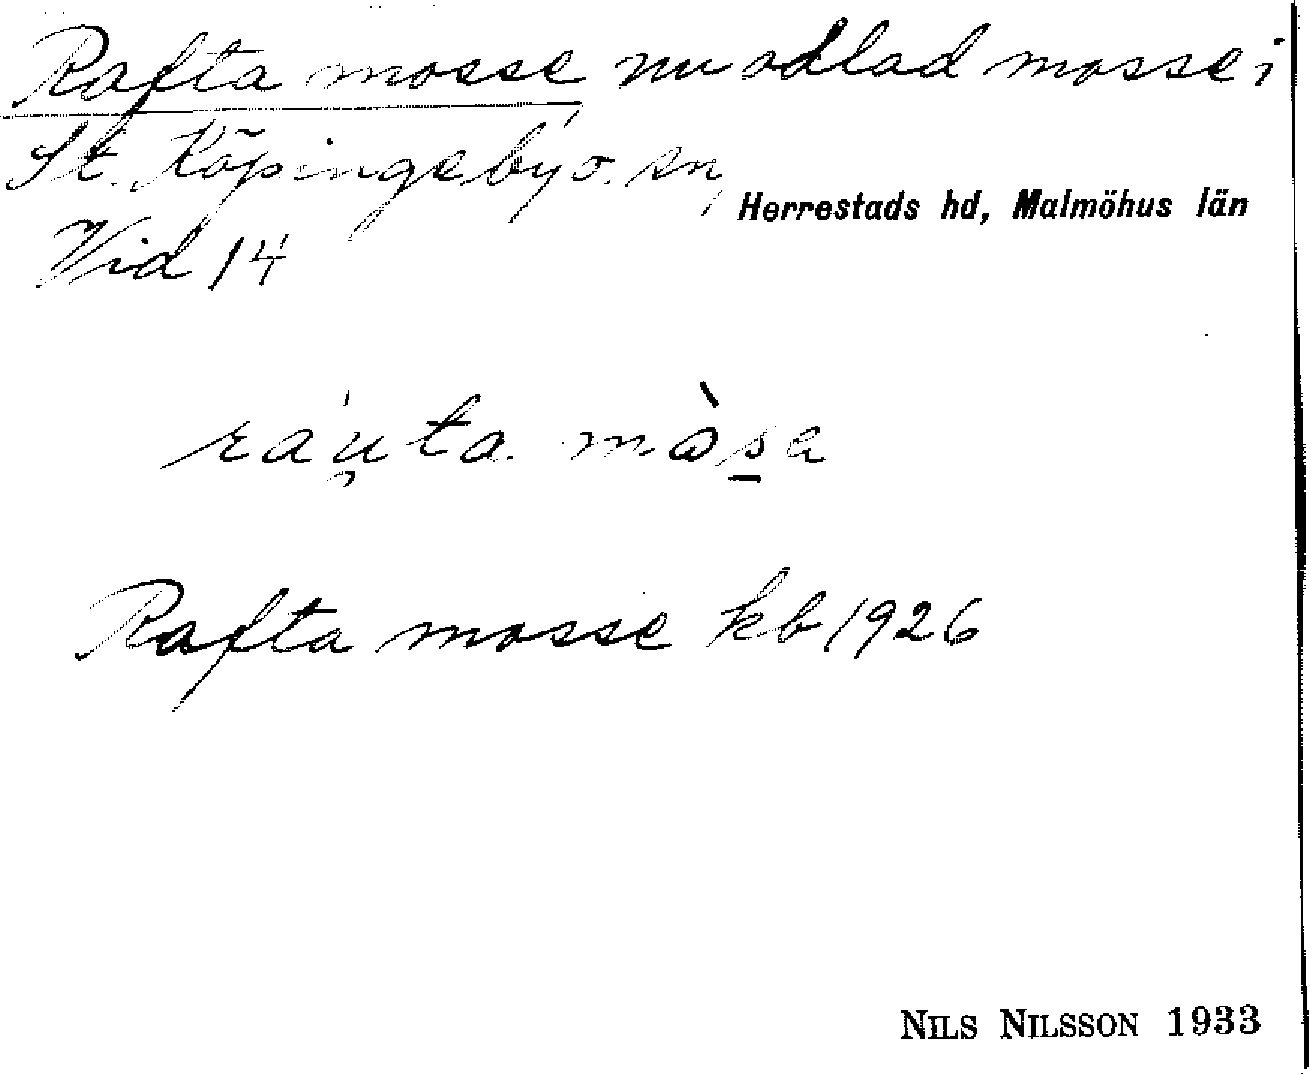 Rafta mosse nu odlad mosse i
St. Köpinge by o. sn,
Herrestads hd, Malmöhus län
Vid 14
ráu̯ta mòsa
Rafta mosse kb 1926
NILS NILSSON 1933